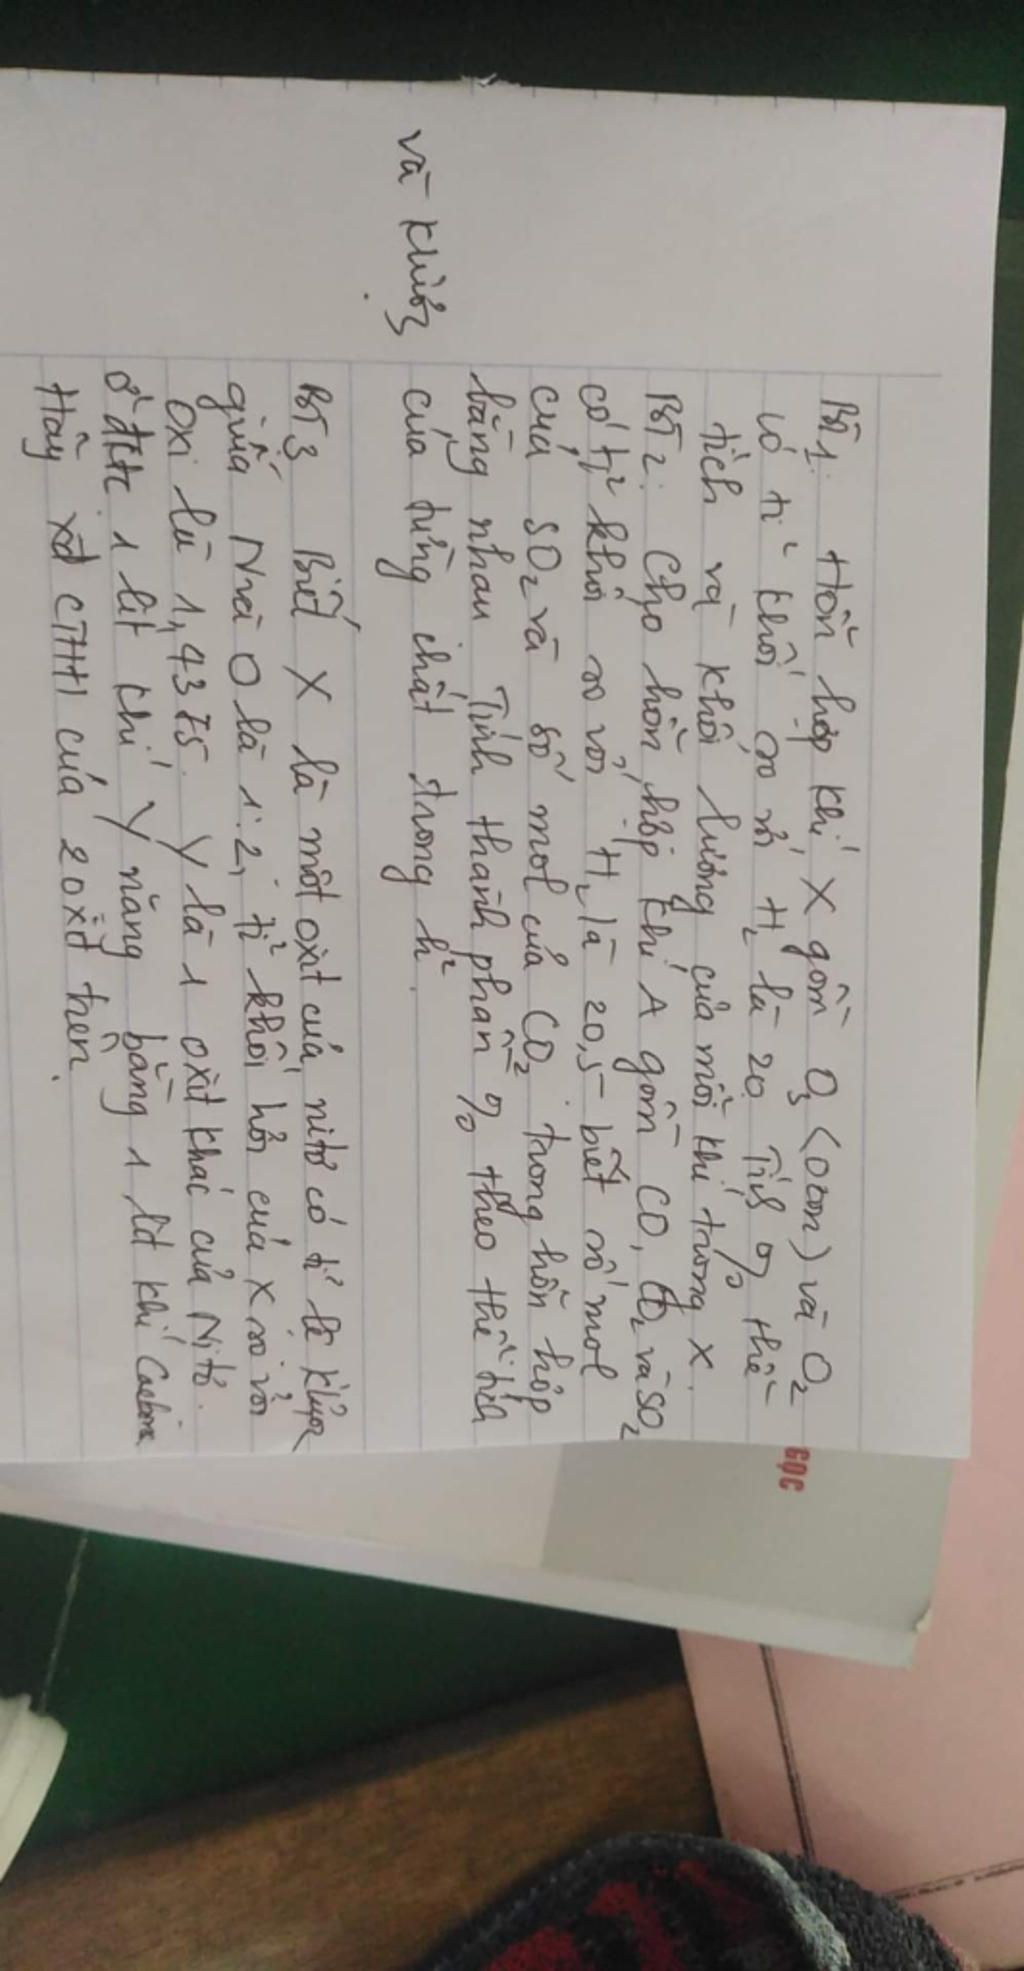 BT1: Hỗn hợp khí X gồm O3 (ozon) và O2
có tỉ khối so với H2 là 20. Tính % thể
tích và khối lượng của mỗi khí trong X.
BT2: Cho hỗn hợp khí A gồm CO, CO2 và SO2
có tỉ khối so với H2 là 20,5 biết số mol
của SO2 và số mol của CO2 trong hỗn hợp
bằng nhau Tính thành phần % theo thể tích
và khối
của từng chất trong h2.
BT3 Biết X là một oxit của nitơ có tỉ lệ
giữa N và O là 1:2, tỉ khối hơi của X so với
oxi là 1,4375. Y là 1 oxit khác của Nitơ.
ở đktc 1 lít khí Y nặng bằng 1 lít khí
Hãy xđ CTHH của 2 oxit trên.
GỌC